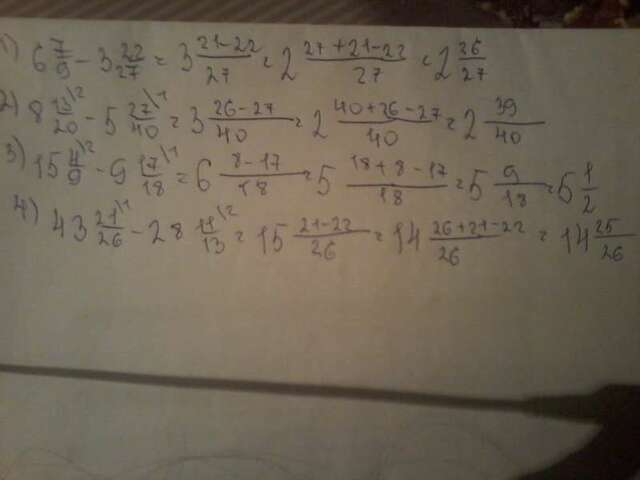 1) 6 7/9 - 3 22/27 = 3 21-22/27 = 2 27+21-22/27 = 2 26/27
2) 8 13\2/20 - 5 27\1/40 = 3 26-27/40 = 2 40+26-27/40 = 2 39/40
3) 15 4\2/9 - 9 17\1/18 = 6 8-17/18 = 5 18+8-17/18 = 5 9/18 = 5 1/2
4) 43 21\1/26 - 28 11\2/13 = 15 21-22/26 = 14 26+21-22/26 = 14 25/26